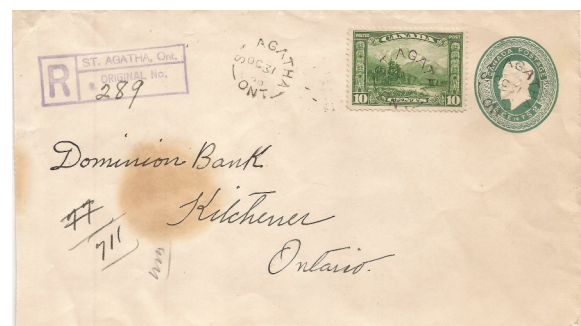 ST. AGATHA, Ont.
R
ORIGINAL No.
289
ST AGATHA
OC 31
ONT
POSTES CANADA POST
10 CENTS 10
CANADA POSTAGE
Dominion Bank
Kitchener
Ontario.
77
711